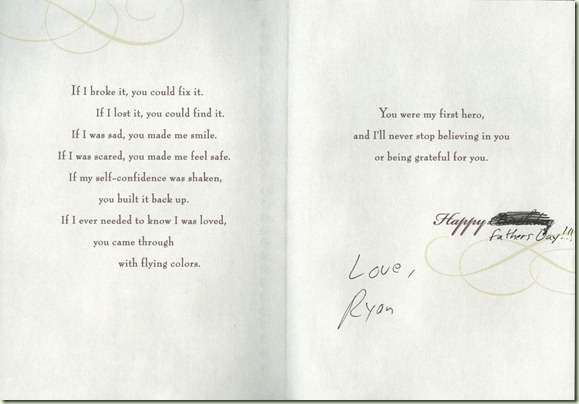 If I broke it, you could fix it.
If I lost it, you could find it.
If I was sad, you made me smile.
If I was scared, you made me feel safe.
If my self-confidence was shaken,
you built it back up.
If I ever needed to know I was loved,
you came through
with flying colors.
You were my first hero,
and I'll never stop believing in you
or being grateful for you.
Happy
fathers Day!!!
Love,
Ryan